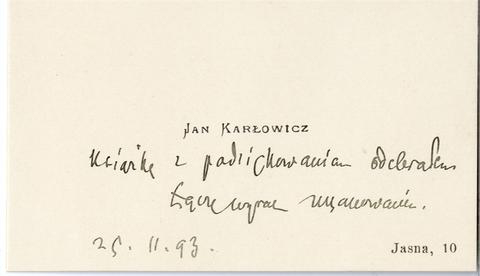 JAN KARŁOWICZ
Książkę z podziękowaniem odebrałem
Łączę wyraz uszanowania.
25. II. 93.
Jasna, 10